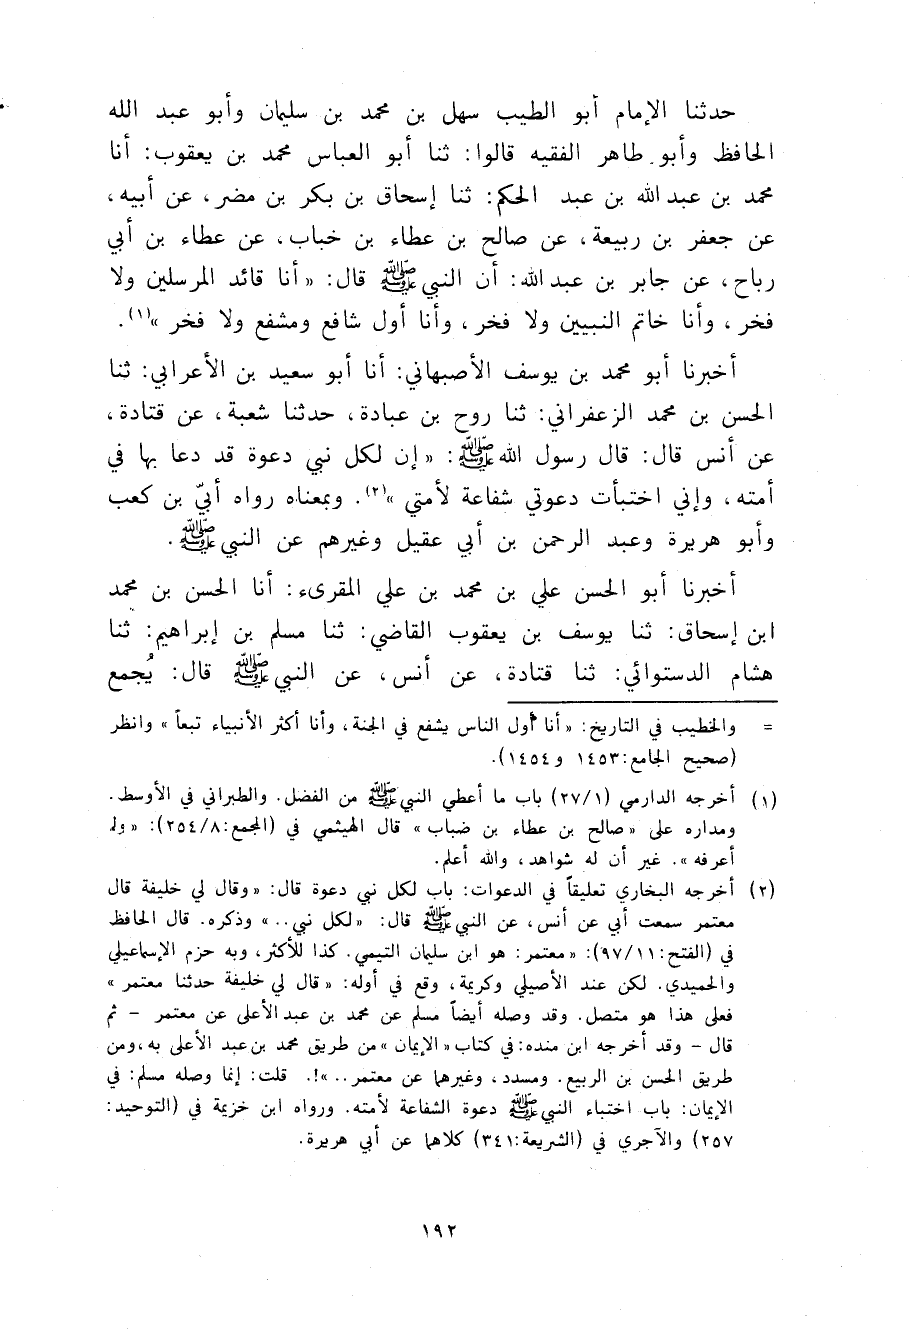 حدثنا الإمام أبو الطيب سهل بن محمد بن سليمان وأبو عبد الله
الحافظ وأبو طاهر الفقيه قالوا: ثنا أبو العباس محمد بن يعقوب: أنا
محمد بن عبد الله بن عبد الحكم: ثنا إسحاق بن بكر بن مضر، عن أبيه،
عن جعفر بن ربيعة، عن صالح بن عطاء بن خباب، عن عطاء بن أبي
رباح، عن جابر بن عبد الله: أن النبي ﷺ قال: « أنا قائد المرسلين ولا
فخر، وأنا خاتم النبيين ولا فخر، وأنا أول شافع ومشفع ولا فخر »(١).
أخبرنا أبو محمد بن يوسف الأصبهاني: أنا أبو سعيد بن الأعرابي: ثنا
الحسن بن محمد الزعفراني: ثنا روح بن عبادة، حدثنا شعبة، عن قتادة،
عن أنس قال: قال رسول الله ﷺ: « إن لكل نبي دعوة قد دعا بها في
أمته، وإني اختبأت دعوتي شفاعة لأمتي »(٢). وبمعناه رواه أبيّ بن كعب
وأبو هريرة وعبد الرحمن بن أبي عقيل وغيرهم عن النبي ﷺ.
أخبرنا أبو الحسن علي بن محمد بن علي المقرىء: أنا الحسن بن محمد
ابن إسحاق: ثنا يوسف بن يعقوب القاضي: ثنا مسلم بن إبراهيم: ثنا
هشام الدستوائي: ثنا قتادة، عن أنس، عن النبي ﷺ قال: يُجمع
= والخطيب في التاريخ: « أنا أول الناس يشفع في الجنة، وأنا أكثر الأنبياء تبعاً » وانظر
(صحيح الجامع:١٤٥٣ و١٤٥٤).
(١) أخرجه الدارمي (٢٧/١) باب ما أعطي النبي ﷺ من الفضل. والطبراني في الأوسط.
ومداره على « صالح بن عطاء بن ضباب » قال الهيثمي في (المجمع:٢٥٤/٨): « ولم
أعرفه ». غير أن له شواهد، والله أعلم.
(٢) أخرجه البخاري تعليقاً في الدعوات: باب لكل نبي دعوة قال: « وقال لي خليفة قال
معتمر سمعت أبي عن أنس، عن النبي ﷺ قال: « لكل نبي.. » وذكره. قال الحافظ
في (الفتح:٩٧/١١): « معتمر: هو ابن سليمان التيمي. كذا للأكثر، وبه حزم الإسماعيلي
والحميدي. لكن عند الأصيلي وكريمة، وقع في أوله: « قال لي خليفة حدثنا معتمر »
فعلى هذا هو متصل. وقد وصله أيضاً مسلم عن محمد بن عبد الأعلى عن معتمر - ثم
قال - وقد أخرجه ابن منده: في كتاب « الإيمان » من طريق محمد بن عبد الأعلى به، ومن
طريق الحسن بن الربيع. ومسدد، وغيرهما عن معتمر.. »!. قلت: إنما وصله مسلم: في
الإيمان: باب اختباء النبي ﷺ دعوة الشفاعة لأمته. ورواه ابن خزيمة في (التوحيد:
٢٥٧) والآجري في (الشريعة:٣٤١) كلاهما عن أبي هريرة.
١٩٢